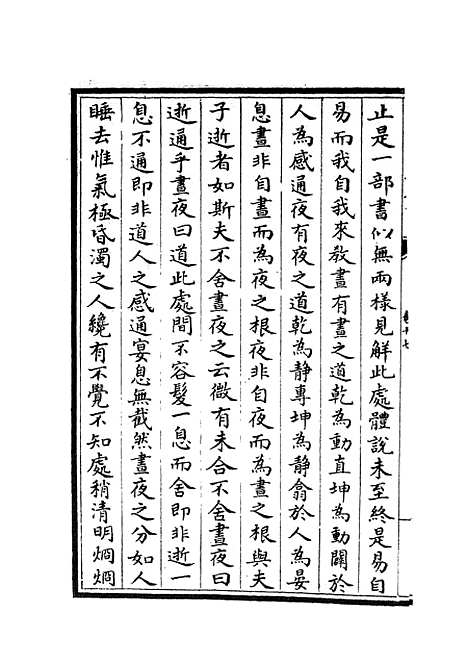 止是一部書似無兩様見解此處體說未至終是易自
易而我自我來教晝有晝之道乾為動直坤為動闢於
人為感通夜有夜之道乾為静專坤為静翕於人為晏
息晝非自晝而為夜之根夜非自夜而為晝之根與夫
子逝者如斯夫不舍晝夜之云微有未合不舍晝夜曰
逝通乎晝夜曰道此處間不容髮一息而舍即非逝一
息不通即非道人之感通宴息無截然晝夜之分如人
睡去惟氣極昏濁之人纔有不覺不知處稍清明烱烱